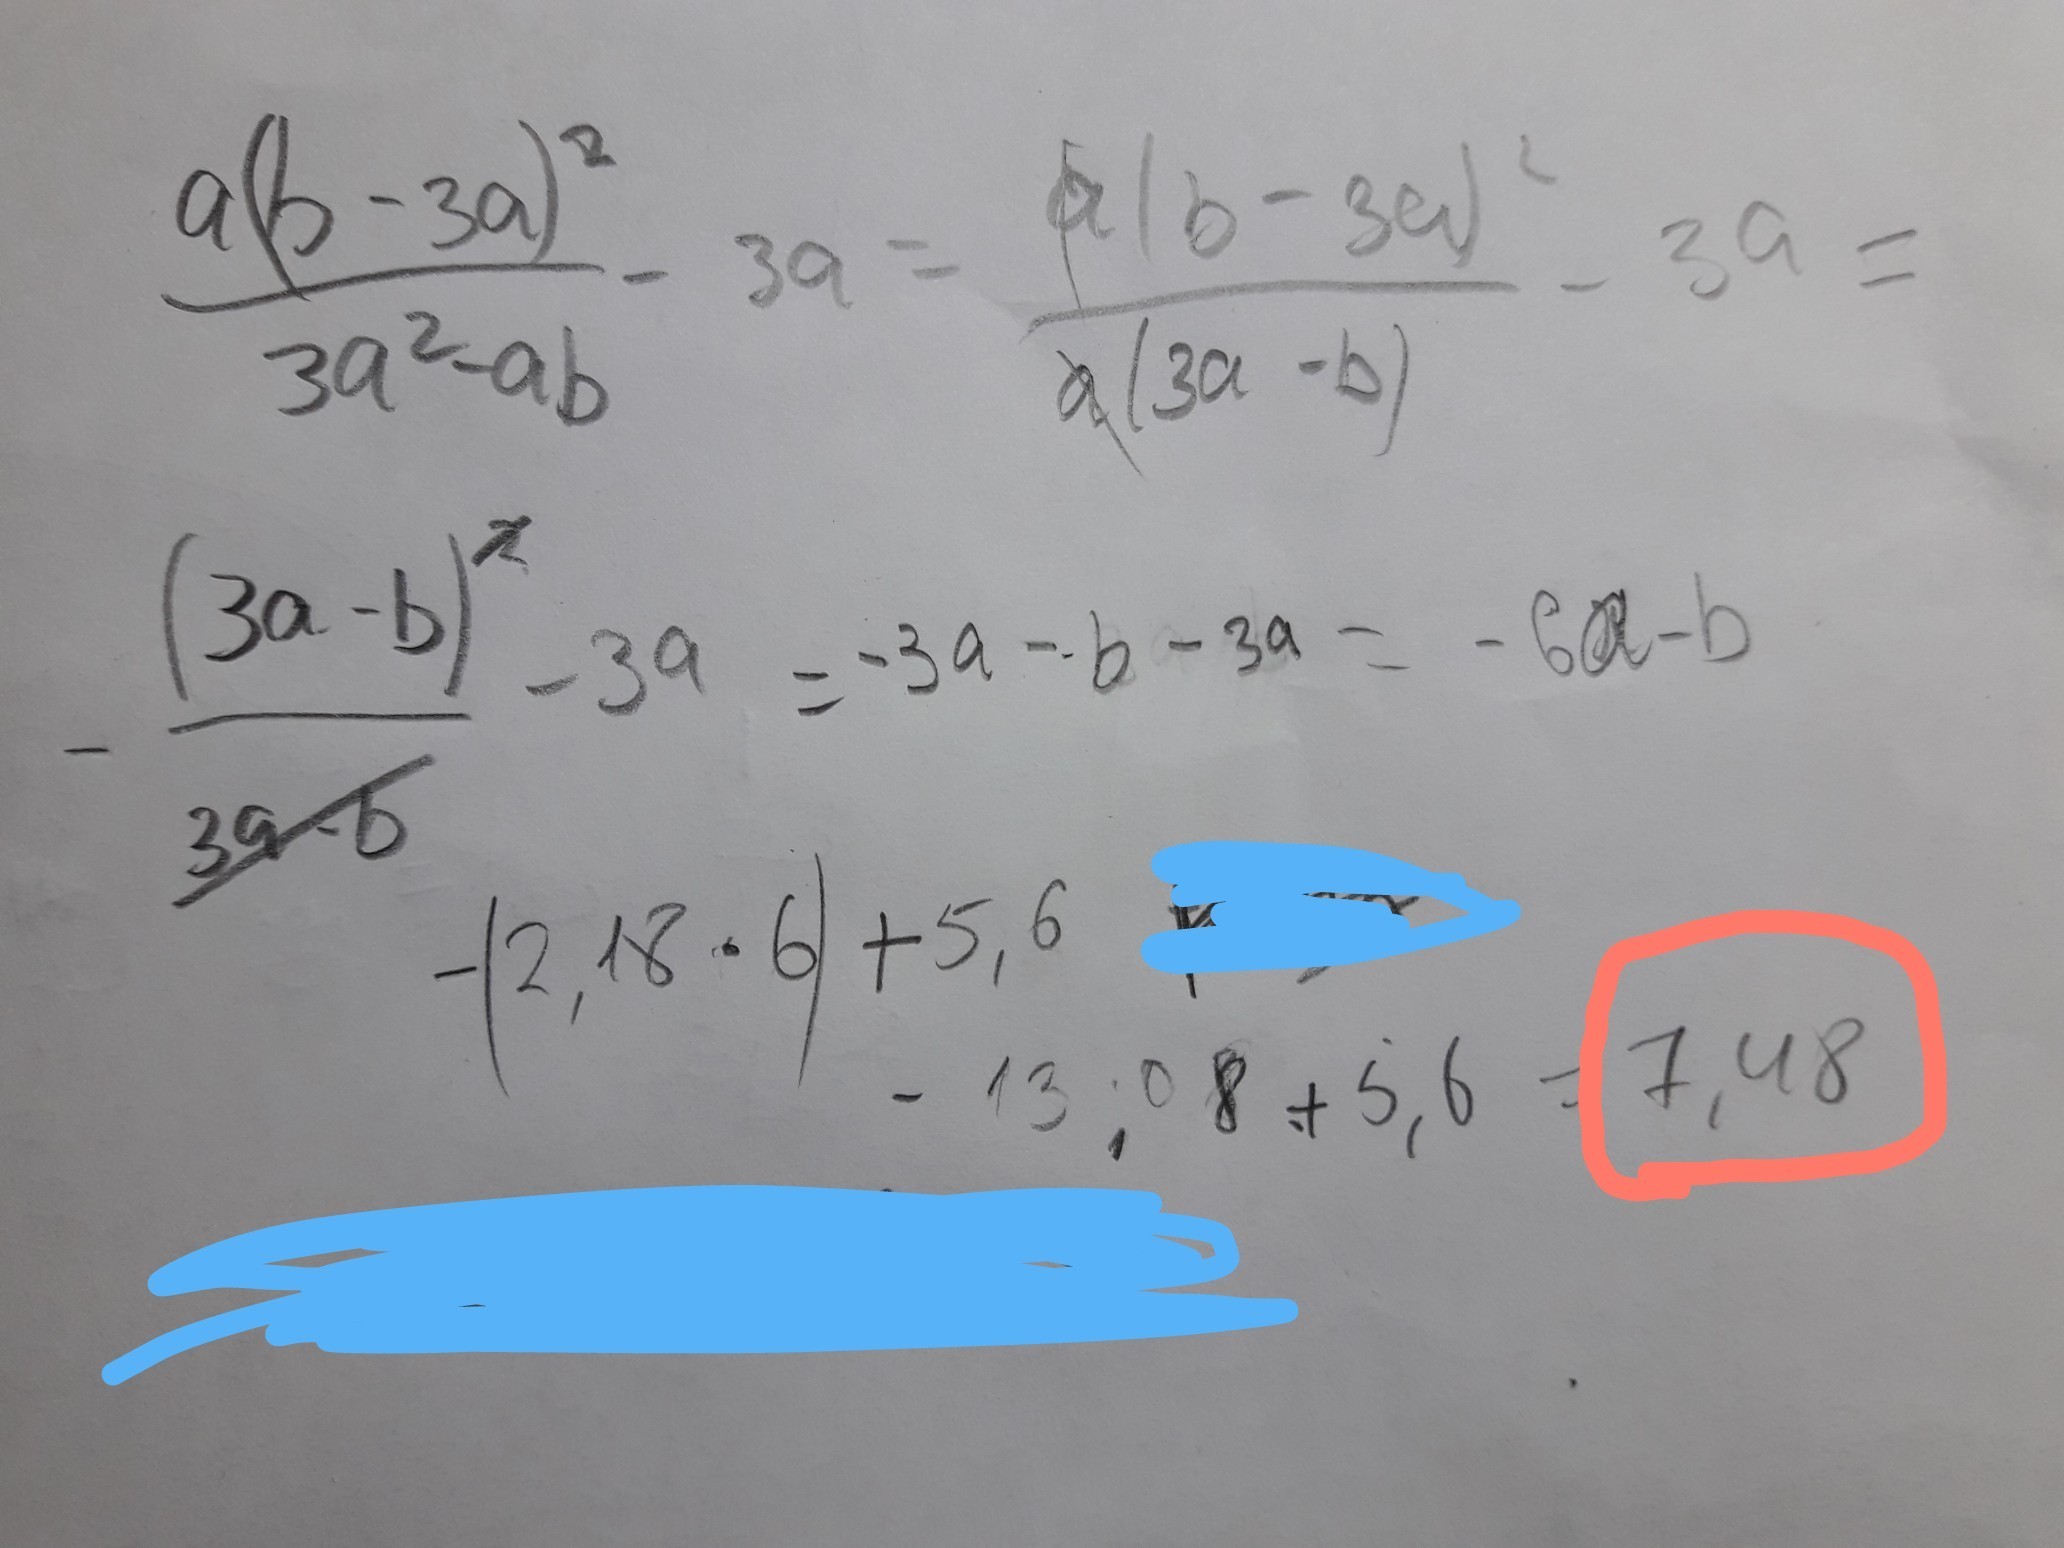 a(b-3a)²/3a²-ab - 3a = a(b-3a)²/a(3a-b) - 3a =
- (3a-b)²/3a-b - 3a = -3a - b - 3a = -6a-b
-(2,18·6)+5,6
- 13,08 + 5,6 = 7,48